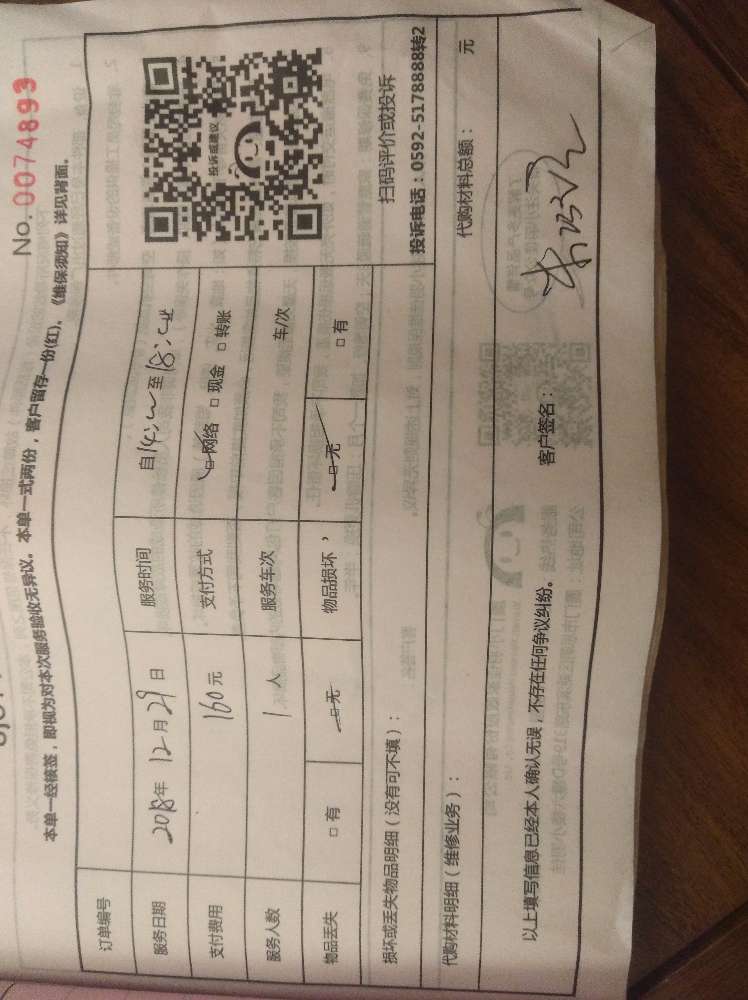 No. 0074893
本单一经核签，即视为对本次服务验收无异议。本单一式两份，客户留存一份(红)、《维保须知》详见背面。
订单编号
服务日期 2018年 12月 29日 服务时间 自14:00至18:00
支付费用 160元 支付方式 ☑网络 □现金 □转账
服务人数 1人 服务车次 车/次
物品丢失 □有 ☑无 物品损坏 ☑无 □有
投诉或建议
扫码评价或投诉
投诉电话：0592-5178888转2
损坏或丢失物品明细（没有可不填）：
代购材料明细（维修业务）： 代购材料总额： 元
以上填写信息已经本人确认无误，不存在任何争议纠纷。 客户签名：